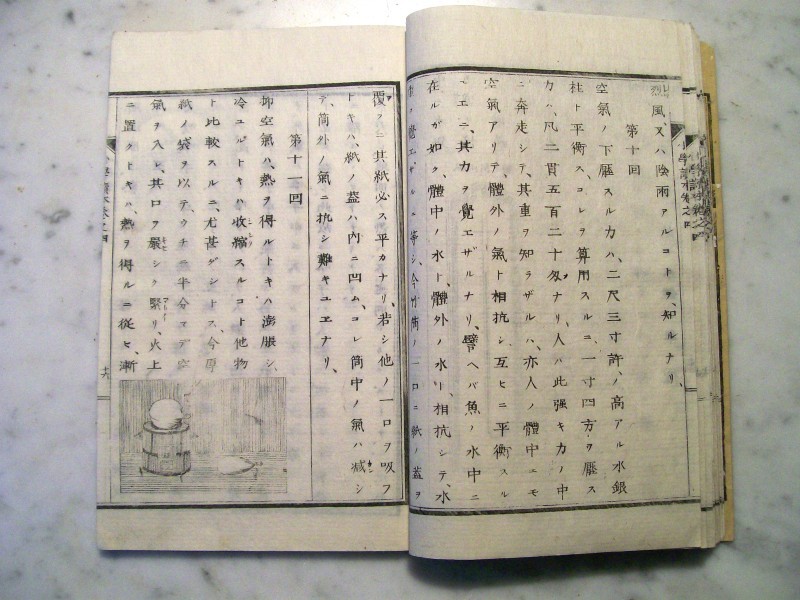 烈風、又ハ陰雨アルコトヲ、知ルナリ、
第十回
空氣ノ下壓スル力ハ、二尺三寸許ノ高アル水銀
柱ト平衡ス、コレヲ算用スルニ、一寸四方ヲ壓ス
力ハ、凡二貫五百二十匁ナリ、人ハ此强キ力ノ中
ニ奔走シテ、其重ヲ知ラザルハ、亦人ノ體中ニモ
空氣アリテ、體外ノ氣ト相抗シ互ヒニ平衡スル
ユエニ、其力ヲ覺エザルナリ、譬ヘバ魚ノ水中ニ
在ルガ如ク、體中ノ水ト、體外ノ水リ、相抗シテ、水
ヲ覺エザルニ等シ、今竹筒ノ一口ニ紙ノ蓋ヲ
覆クニ其紙必ス平カナリ、若シ他ノ一口ヲ吸フ
トキハ、紙ノ蓋ハ內ニ凹ム、コレ筒中ノ氣ハ減シ
テ、筒外ノ氣ニ抗シ難キユヱナリ、
第十一回
抑空氣ハ、熱ヲ得ルトキハ膨脹シ、
冷ユルトキハ收縮スルコト他物
ト比較スルニ、尤甚ダシトス、今
紙ノ袋ヲ以テ、ウチニ半分マデ空
氣ヲ入レ、其口ヲ嚴シク緊リ、火上
ニ置クトキハ、熱ヲ得ルニ從ヒ、漸
十六